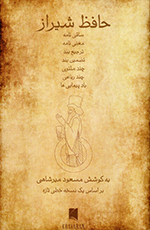 حافظ شیراز
ساقی نامه
مغنی نامه
ترجیع بند
تضمین بند
چند مثنوی
چند رباعی
باد پیمایی ها
به کوشش مسعود میرشاهی
بر اساس یک نسخه خطی تازه